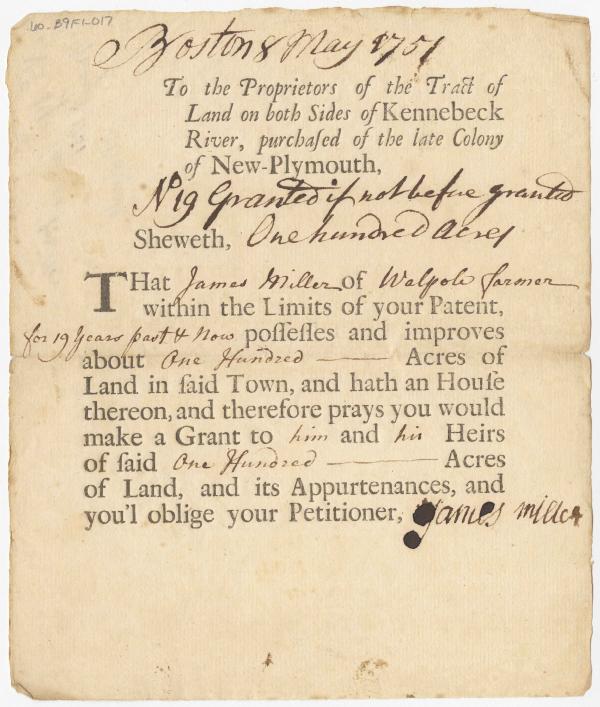 60-B9F1-017
Boston 8 May 1751
To the Proprietors of the Tract of
Land on both Sides of Kennebeck
River, purchaſed of the late Colony
of New-Plymouth,
N 19 Granted if not before granted
Sheweth, One hundred Acres
THat James Miller of Walpole farmer
within the Limits of your Patent,
for 19 Years past & Now poſſeſſes and improves
about One Hundred — Acres of
Land in ſaid Town, and hath an Houſe
thereon, and therefore prays you would
make a Grant to him and his Heirs
of ſaid One Hundred — Acres
of Land, and its Appurtenances, and
you'l oblige your Petitioner, James Miller